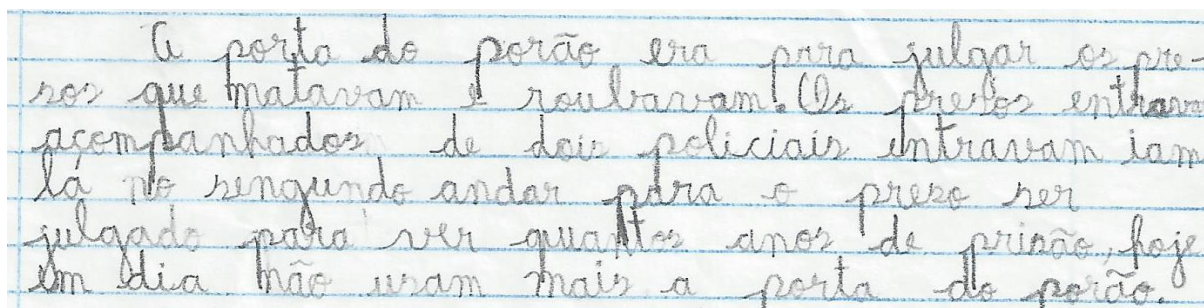 A porta do porão era para julgar os pre-
sos que matavam e roubavam. Os presos entravam
açompanhados de dois policiais entravam iam
lá no sengundo andar para o preso ser
julgado para ver quantos anos de prisão, hoje
em dia não usam mais a porta do porão.